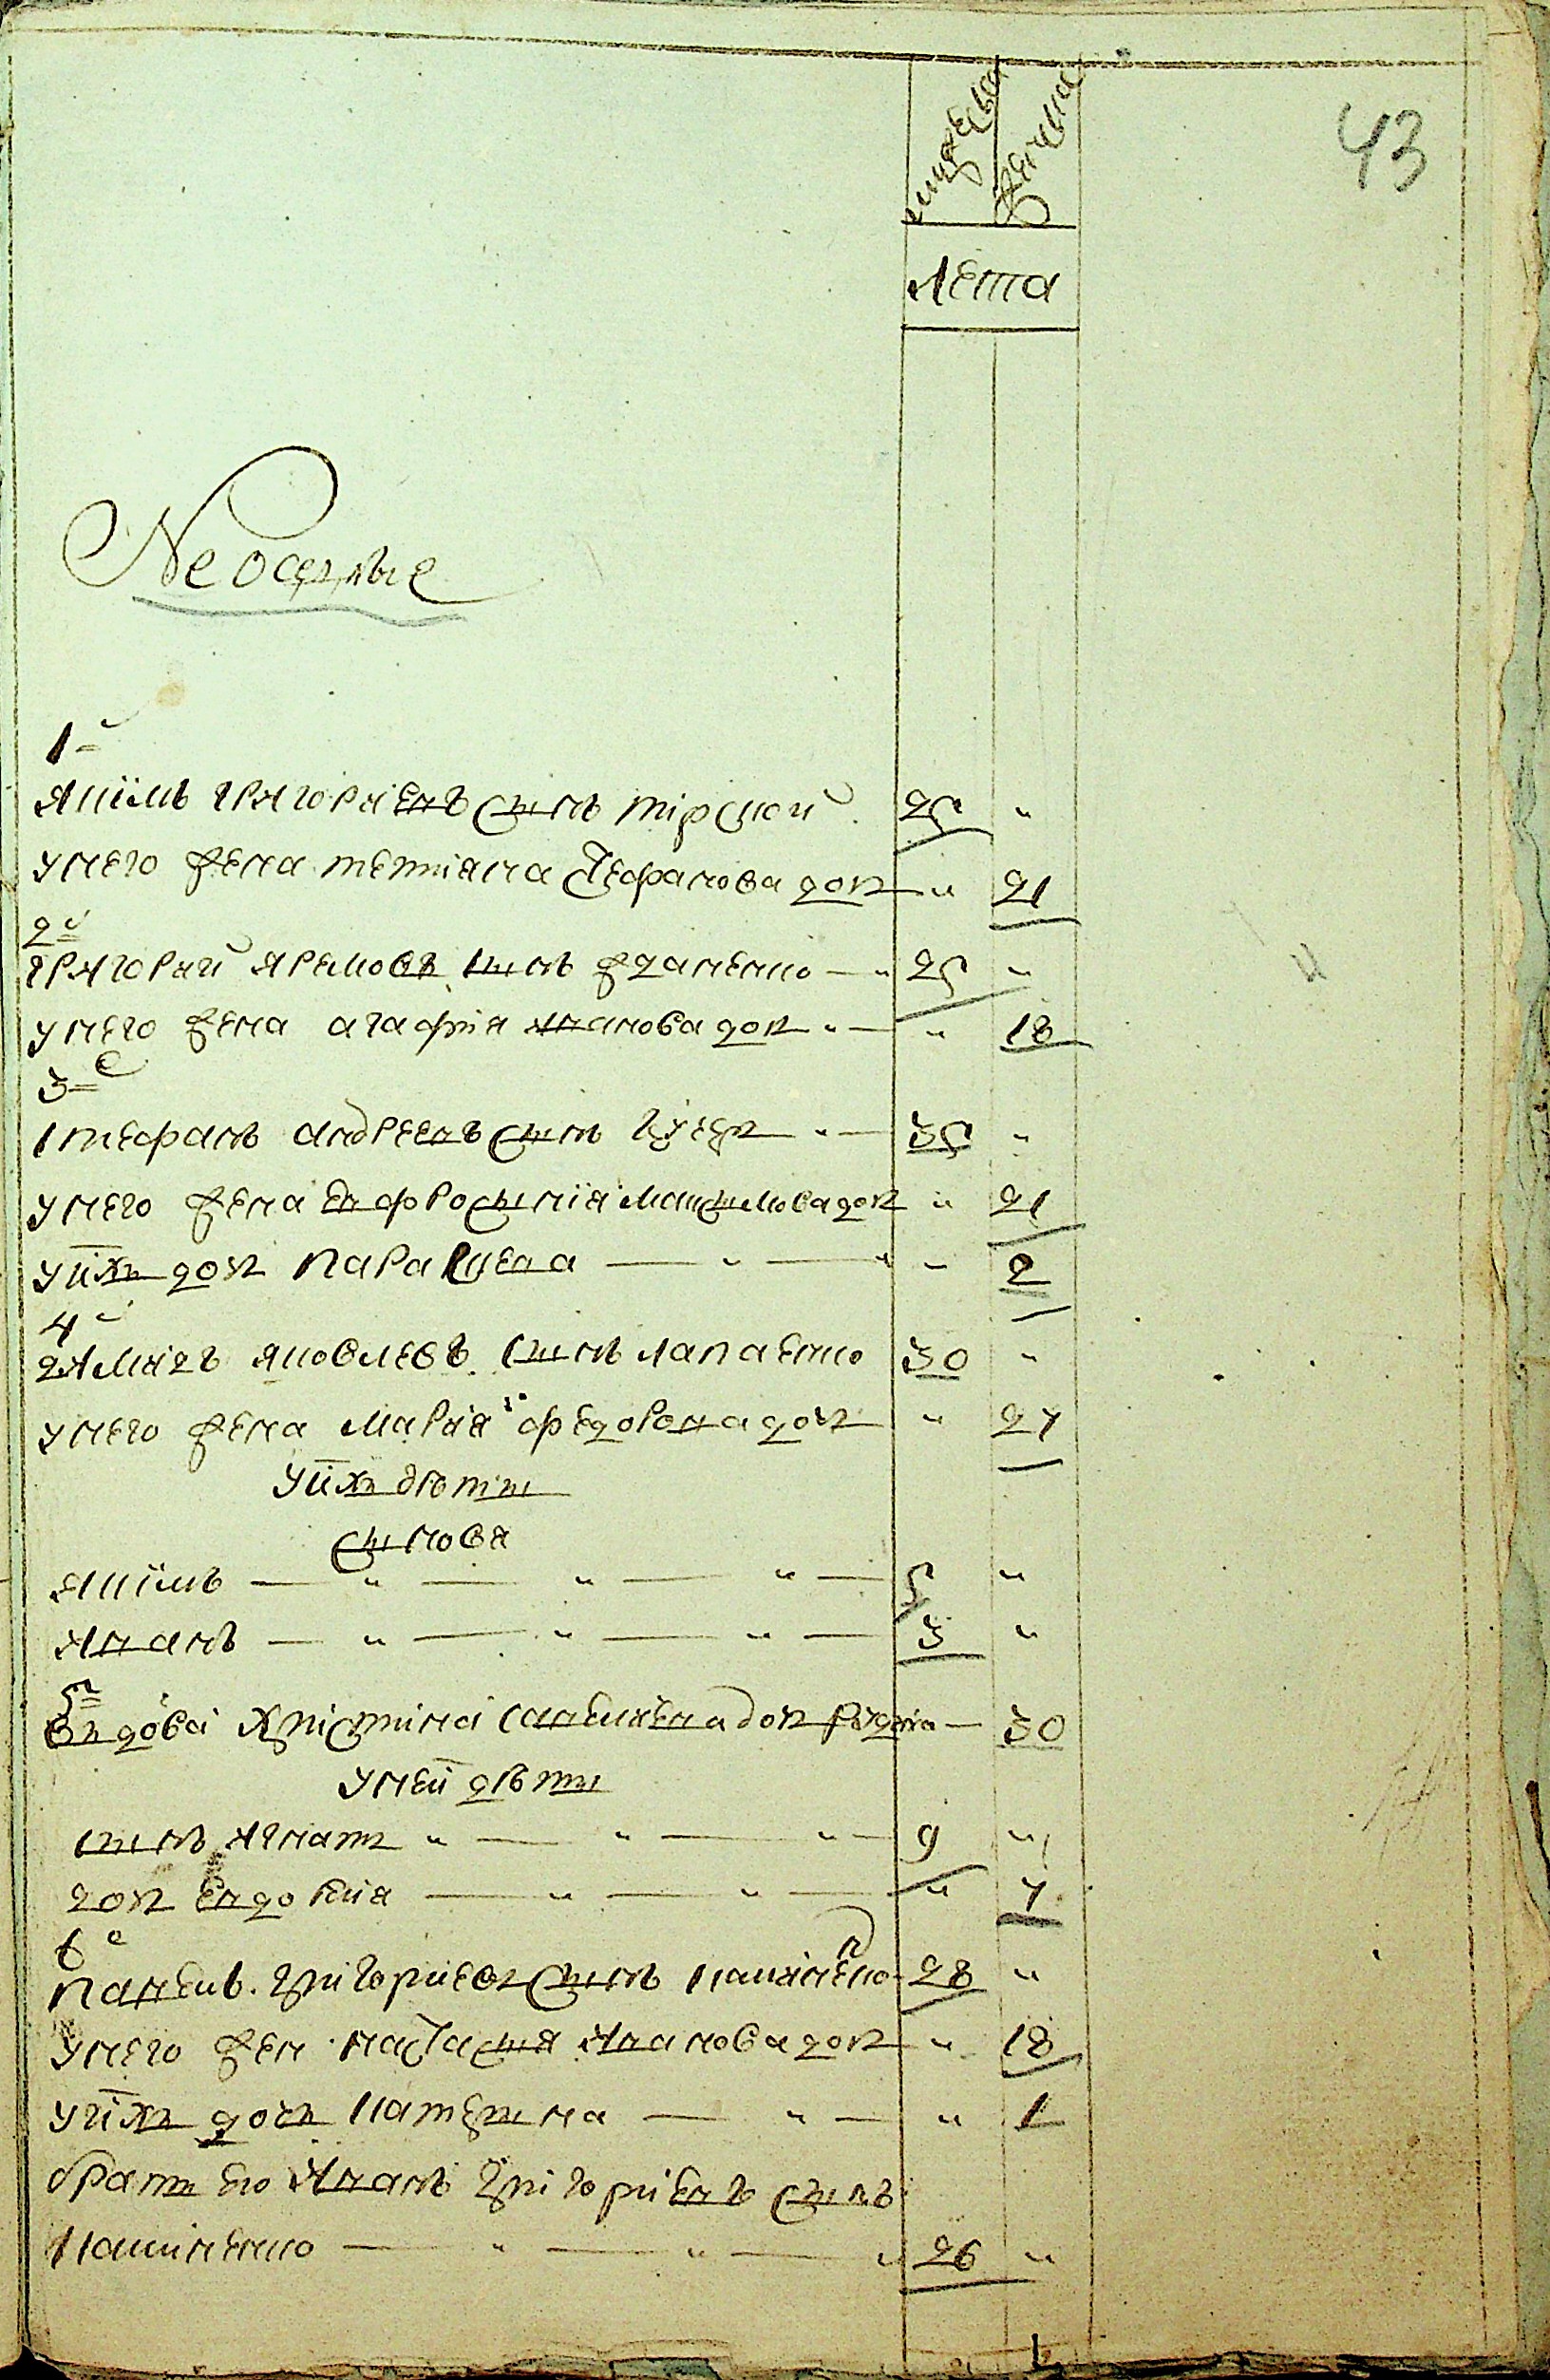 43
мужеска
женска
лета
Неоседлые
1й
Якимъ Григориевъ сынъ Тирской 25 "
у него жена Тетияна Стефанова доч " 21
2й
Григорий Яремовъ сынъ Жданенко — " 25 "
у него жена Агафия Иванова доч " — " 18
3е
Стефанъ Андреевъ сынъ " — 35 "
у него жена Евфросыния Максымова доч " 21
у них доч Параскева — " — " " 2
4й
Дмиръ Яковлевъ сынъ Лапаенко 30 "
у него жена Мария Федорова доч " 27
у них дѣты
сынова
Якимъ — " — " — " — 5 "
Иванъ — " — " — " — 3 "
5
Вдова Христина Савелиева доч — 30
у ней дѣты
сынъ Игнатъ " — " — " — 9 "
доч Евдокия — " — " — " 7
6е
Павелъ Григориевъ сынъ Кашиненко 28 "
у него жен Настасыя Иванова доч " 18
у них доч Катерына — " — " 1
братъ его Иванъ Григориевъ сынъ
Кашиненко — " — " — " 26 "